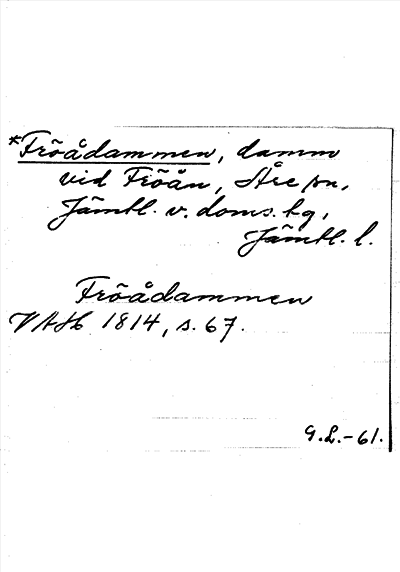 *Fröådammen, damm
vid Fröån, Åre sn,
Jämtl. v. doms. tg,
Jämtl. l.
Fröådammen
VAH 1814, s. 67.
G.L.-61.